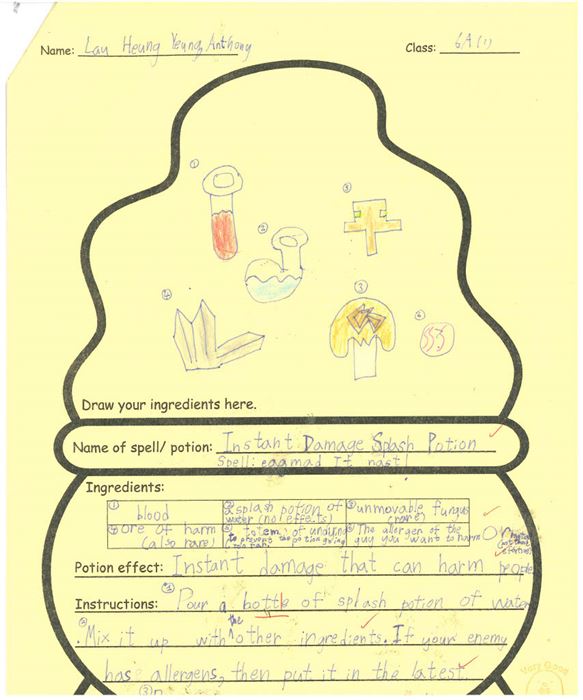 Name: Lau Heung Yeung, Anthony
Class: 6A (1)
①
②
③
④
⑤
⑥
Draw your ingredients here.
Name of spell/ potion: Instant Damage Splash Potion
Spell: egamad tt nast!
Ingredients:
① blood
② splash potion of water (no effects)
③ unmovable fungus (rare)
④ ore of harm (also rare)
⑤ totem of undying to prevent the potion going too far
⑥ The allergen of the guy you want to harm
Potion effect: Instant damage that can harm people
Instructions: ① Pour a bottle of splash potion of water
② . Mix it up with the other ingredients. If your enemy
has allergens, then put it in the latest.
③
Very Good